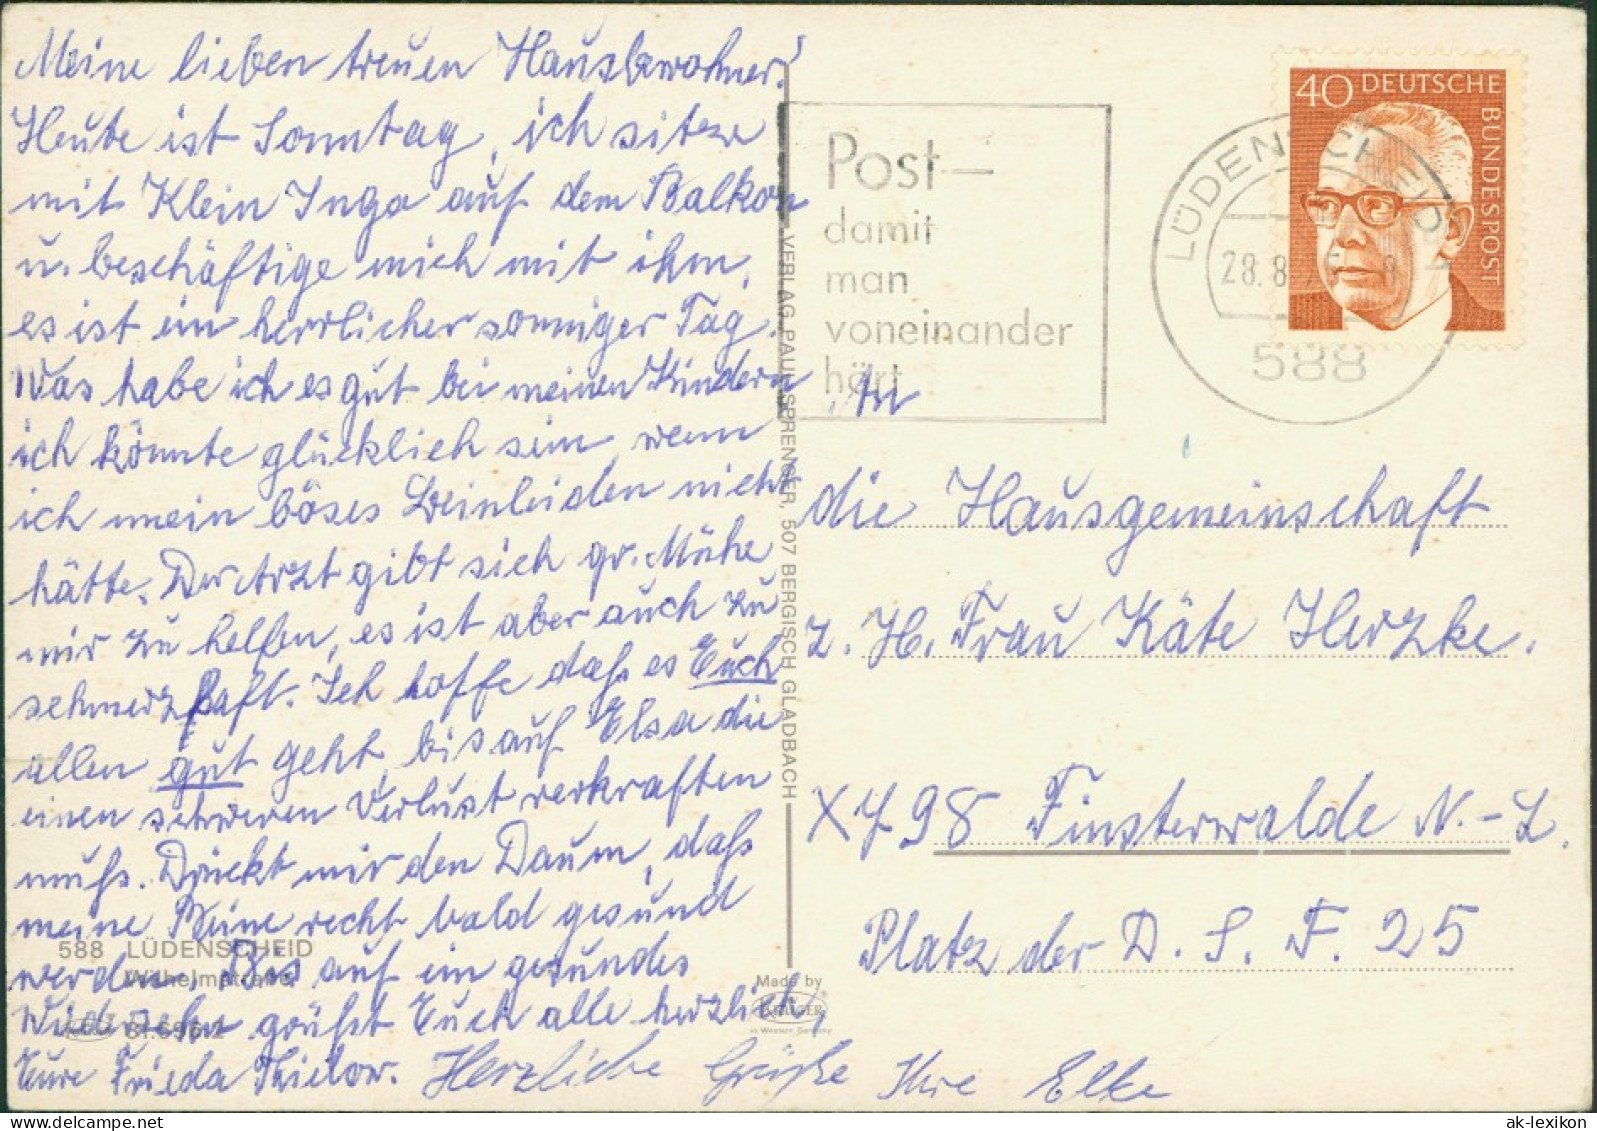 Meine lieben treuen Hausbewohner!
Heute ist Sonntag, ich sitze
mit Klein Ingo auf dem Balkon
u. beschäftige mich mit ihm,
es ist ein herrlicher sonniger Tag.
Was habe ich es gut bei meinen Kindern
ich könnte glücklich sein wenn
ich mein böses Beinleiden nicht
hätte. Der Arzt gibt sich gr. Mühe
mir zu helfen, es ist aber auch zu
schmerzhaft. Ich hoffe daß es Euch
allen gut geht, bis auf Elsa die
einen schweren Verlust verkraften
muß. Drückt mir den Daum, daß
meine Beine recht bald gesund
werden. Bis auf ein gesundes
Wiedersehn grüßt Euch alle herzlich,
Eure Frieda Thielow. Herzliche Grüße Ihre Elke
588 LÜDENSCHEID
Wilhelmstraße
VERLAG PAUL SPRENGER, 507 BERGISCH GLADBACH
Made by
KRÜGER
in Western Germany
Post—
damit
man
voneinander
hört
LÜDENSCHEID 1
28.8.
588
40 DEUTSCHE
BUNDESPOST
An
die Hausgemeinschaft
z. H. Frau Käte Herzke.
X 798 Finsterwalde N.-L.
Platz der D. S. F. 25
ak-lexikon